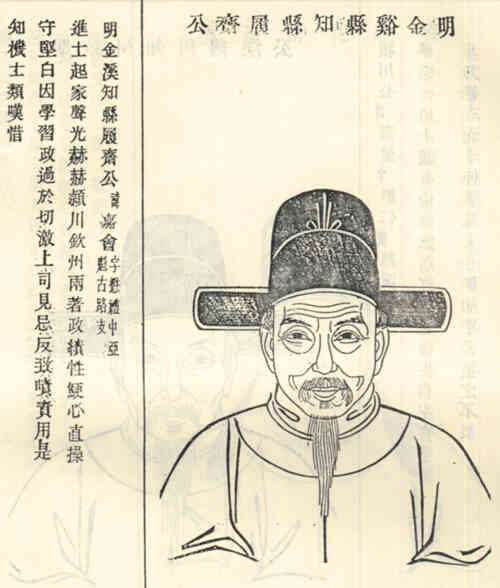 明金谿縣知縣展齋公
明金溪知縣展齋公諱嘉會字懋禮中亞魁古路支
進士起家聲光赫赫潁川欽州兩著政績性鯁心直操
守堅白因學習政過於切激上司見忌反致嘖責用是
知機士類嘆惜